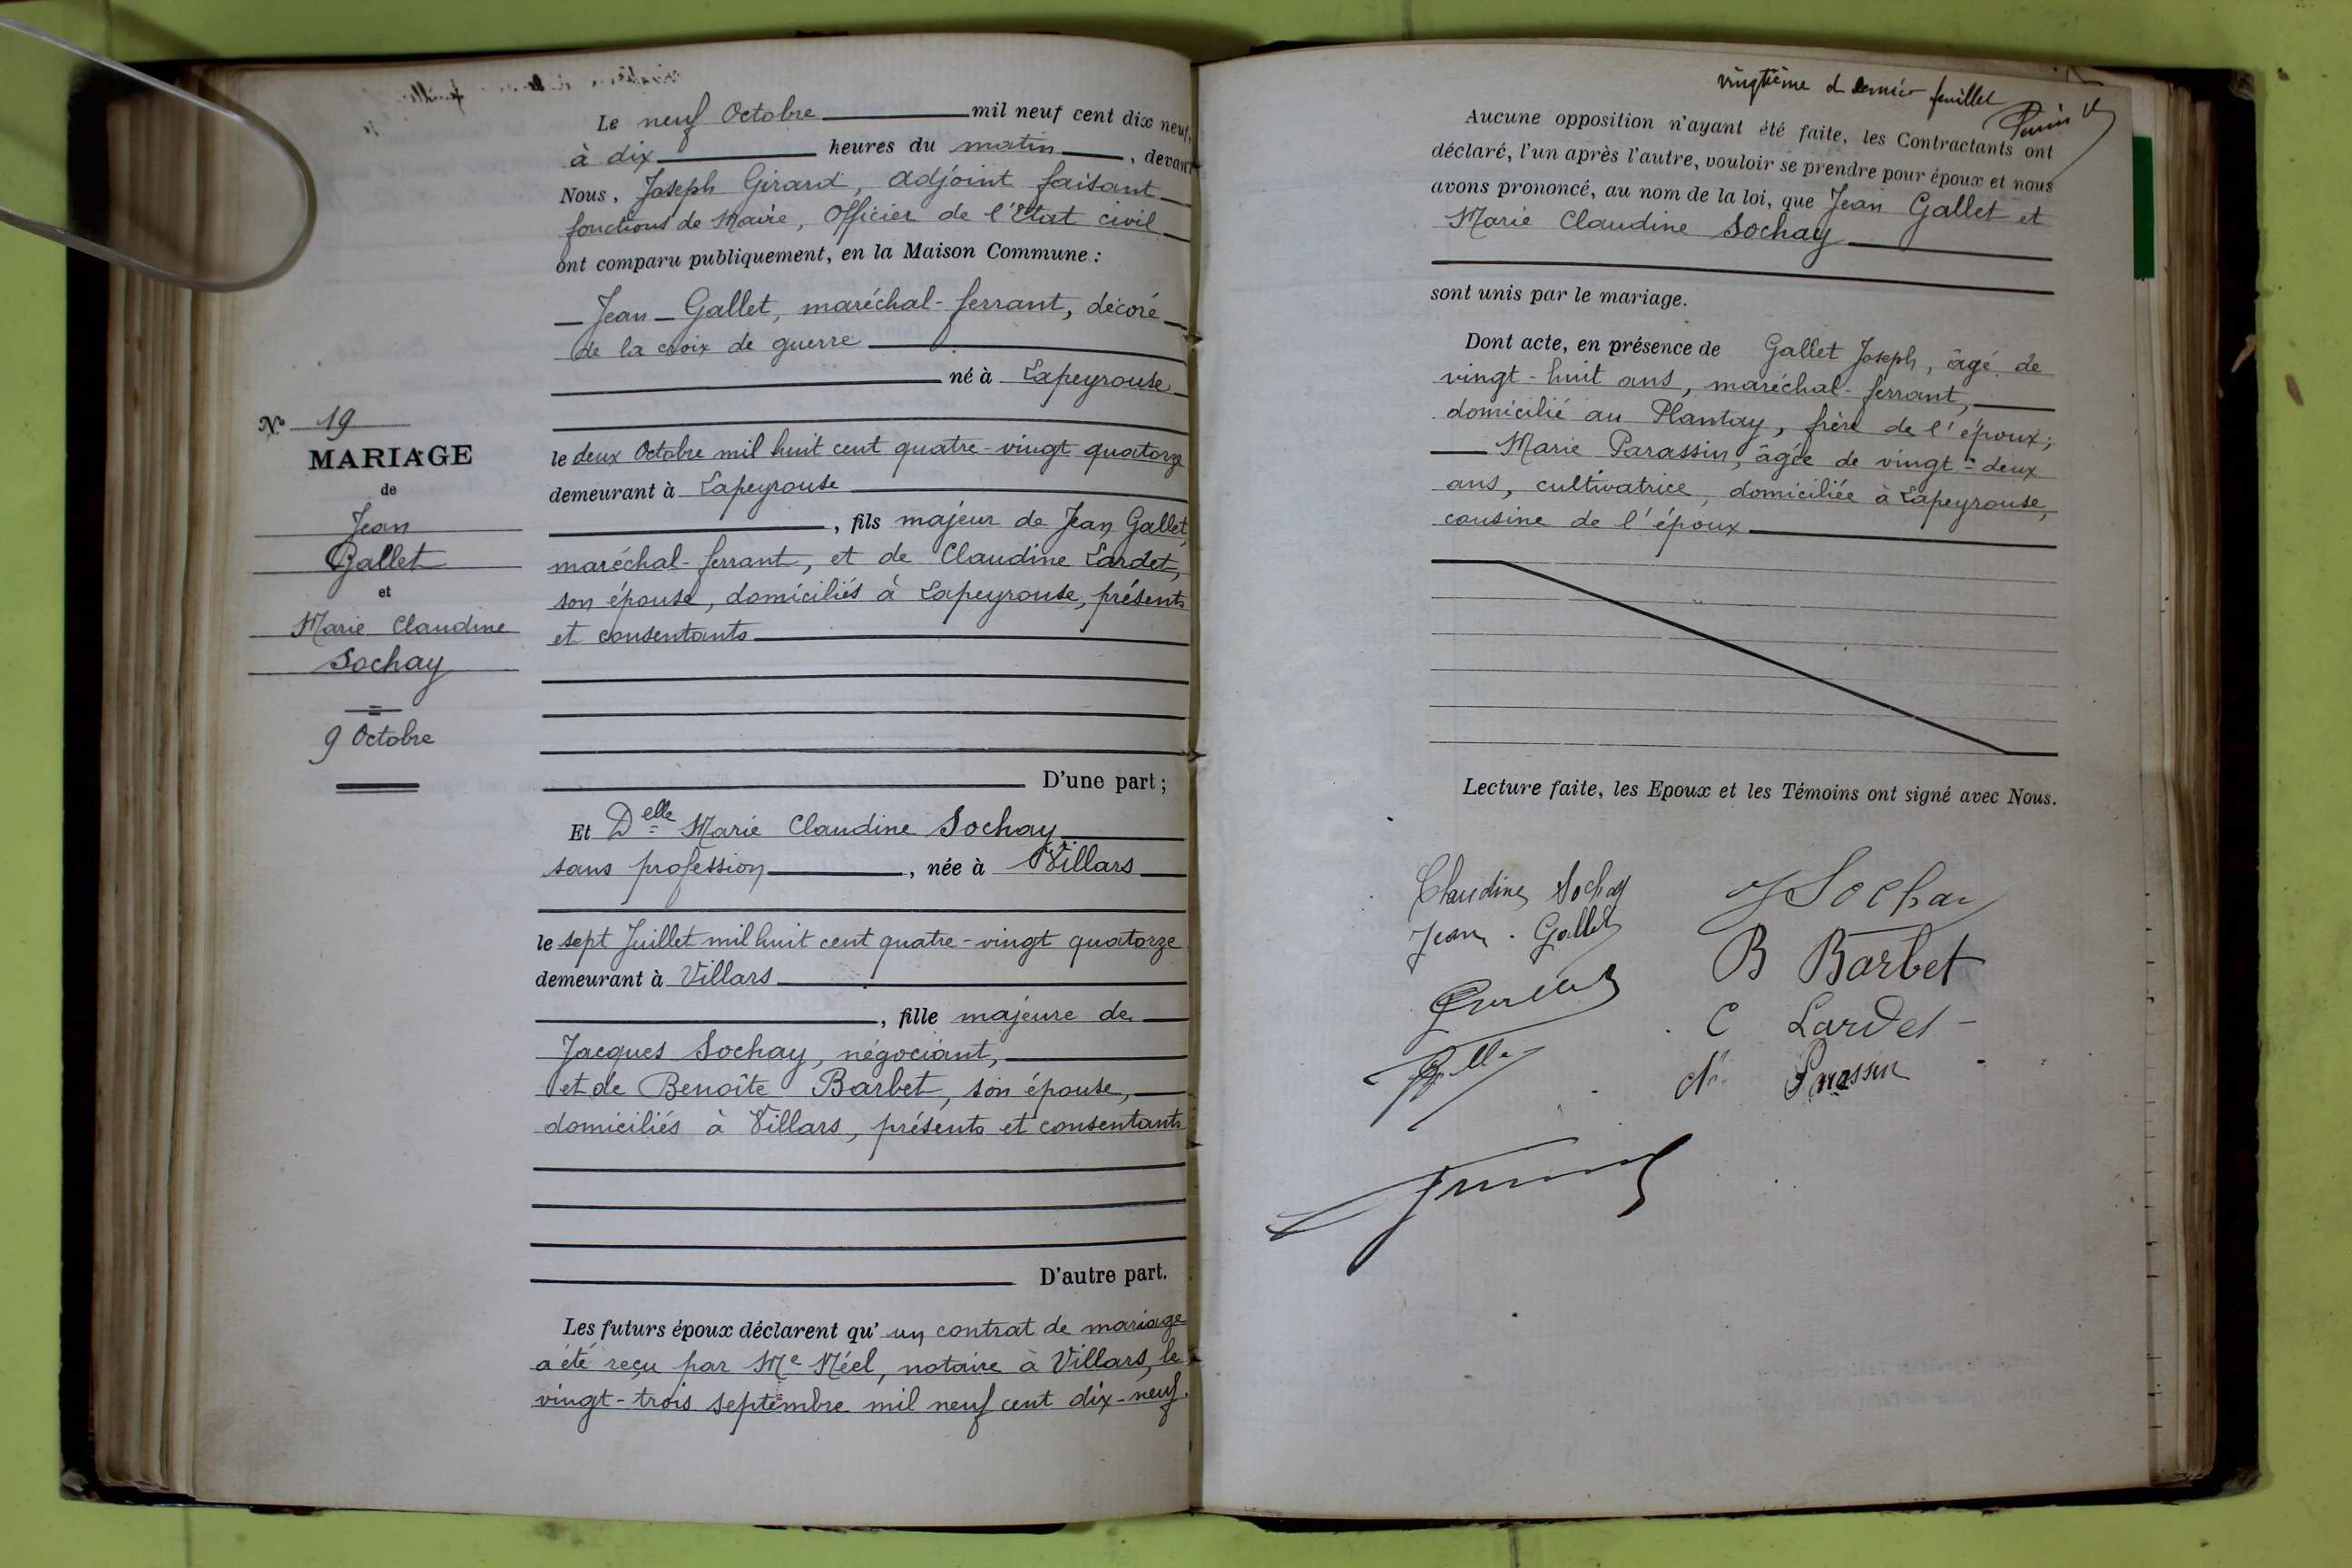 N° 19
MARIAGE
de
Jean
Gallet
et
Marie Claudine
Sochay
9 Octobre
Le neuf Octobre mil neuf cent dix neuf,
à dix heures du matin, devant
Nous, Joseph Girard, adjoint faisant
fonctions de Maire, Officier de l'Etat civil
ont comparu publiquement, en la Maison Commune :
Jean Gallet, maréchal-ferrant, décoré
de la croix de guerre
né à Lapeyrouse
le deux Octobre mil huit cent quatre-vingt quatorze
demeurant à Lapeyrouse
, fils majeur de Jean Gallet,
maréchal-ferrant, et de Claudine Lardet,
son épouse, domiciliés à Lapeyrouse, présents
et consentants
D'une part ;
Et Delle Marie Claudine Sochay
sans profession, née à Villars
le sept Juillet mil huit cent quatre-vingt quatorze
demeurant à Villars
, fille majeure de
Jacques Sochay, négociant,
et de Benoîte Barbet, son épouse,
domiciliés à Villars, présents et consentants
D'autre part.
Les futurs époux déclarent qu'un contrat de mariage
a été reçu par Me Méel, notaire à Villars, le
vingt-trois septembre mil neuf cent dix-neuf.
vingtième et dernier feuillet
Aucune opposition n'ayant été faite, les Contractants ont
déclaré, l'un après l'autre, vouloir se prendre pour époux et nous
avons prononcé, au nom de la loi, que Jean Gallet et
Marie Claudine Sochay
sont unis par le mariage.
Dont acte, en présence de Gallet Joseph, âgé de
vingt-huit ans, maréchal-ferrant,
domicilié au Plantay, frère de l'époux ;
Marie Parassin, âgée de vingt-deux
ans, cultivatrice, domiciliée à Lapeyrouse,
cousine de l'époux
Lecture faite, les Epoux et les Témoins ont signé avec Nous.
Claudine Sochay
J Sochay
Jean Gallet
B Barbet
C Lardet
M Parassin